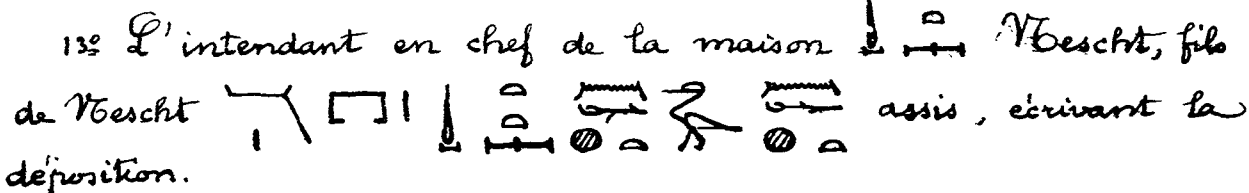 13º L'intendant en chef de la maison Nescht, fils
de Nescht assis, écrivant la
déposition.